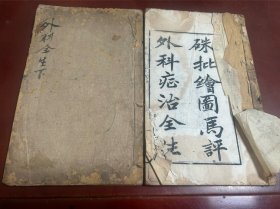 硃批繪圖馬評
外科症治全生
外科全生下